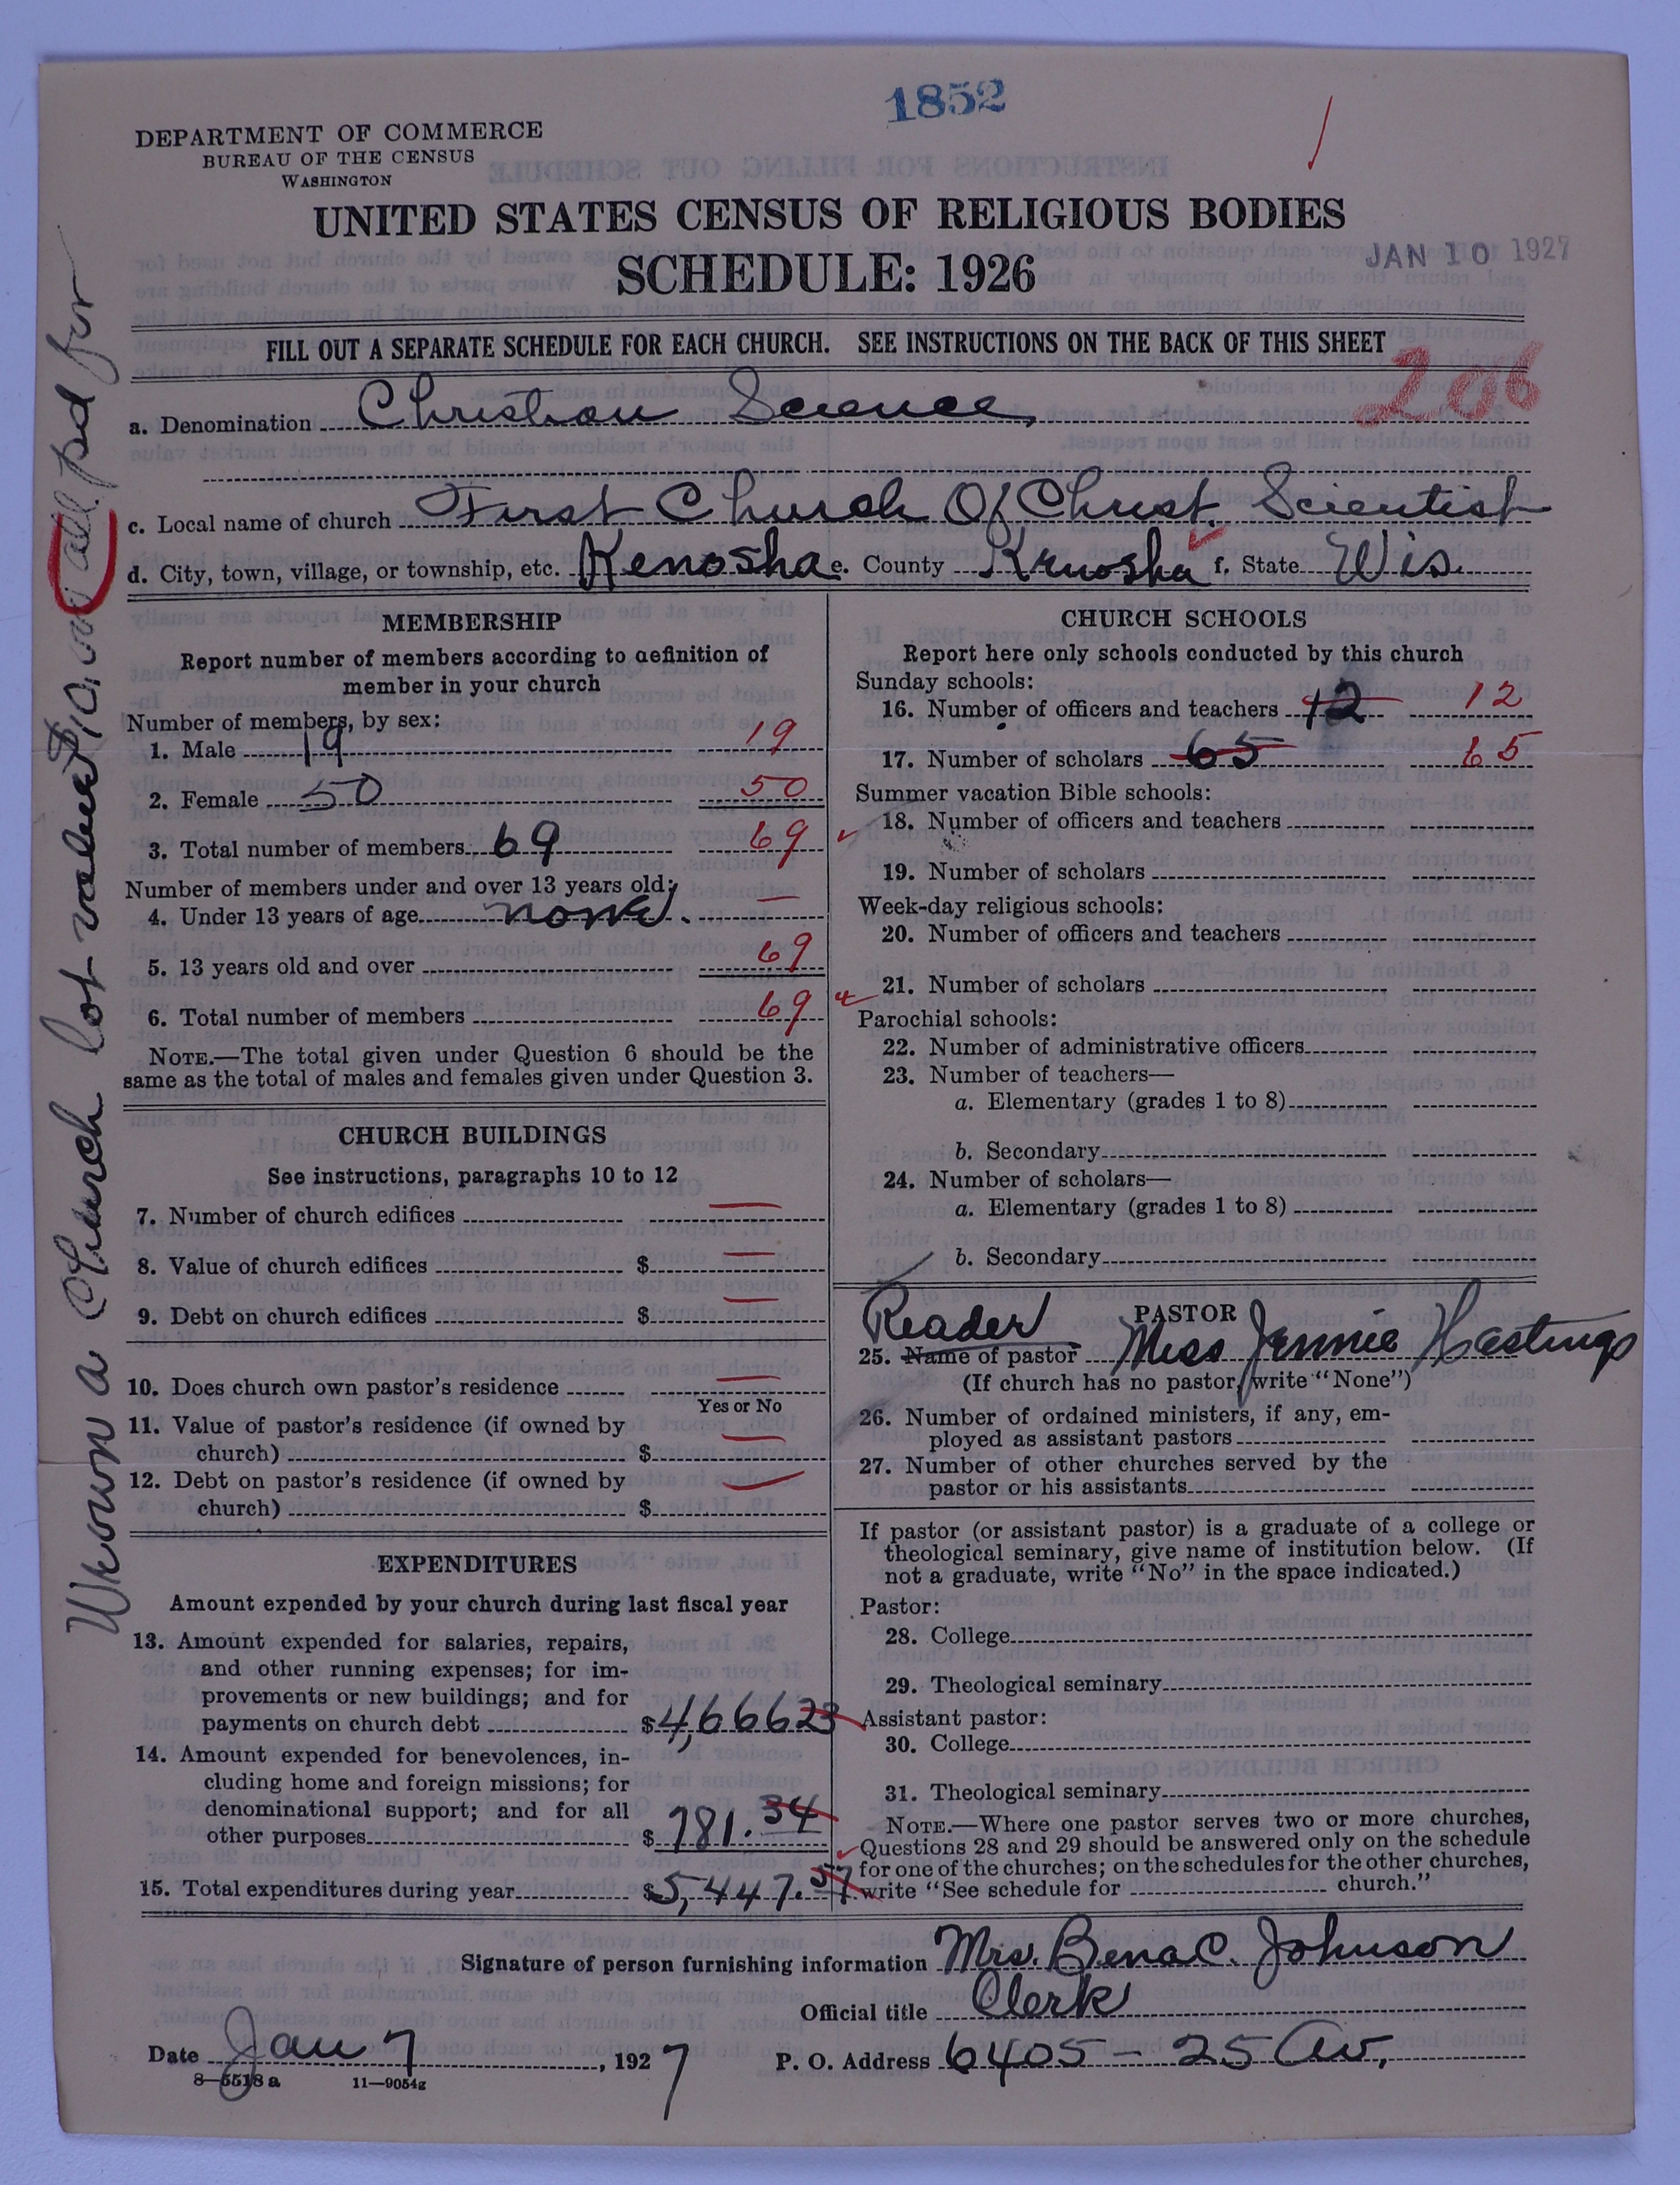 1852
DEPARTMENT OF COMMERCE
BUREAU OF THE CENSUS
WASHINGTON
UNITED STATES CENSUS OF RELIGIOUS BODIES
JAN 10 1927
SCHEDULE: 1926
FILL OUT A SEPARATE SCHEDULE FOR EACH CHURCH. SEE INSTRUCTIONS ON THE BACK OF THIS SHEET
206
a. Denomination Christian Science,
c. Local name of church First Church Of Christ, Scientist
d. City, town, village, or township, etc. Kenosha e. County Kenosha f. State Wis.
MEMBERSHIP
Report number of members according to definition of
member in your church
Number of members, by sex:
1. Male 19 19
2. Female 50 50
3. Total number of members 69 69
Number of members under and over 13 years old:
4. Under 13 years of age none. —
5. 13 years old and over 69
6. Total number of members 69
NOTE.—The total given under Question 6 should be the
same as the total of males and females given under Question 3.
CHURCH BUILDINGS
See instructions, paragraphs 10 to 12
7. Number of church edifices —
8. Value of church edifices $ —
9. Debt on church edifices $ —
10. Does church own pastor's residence —
Yes or No
11. Value of pastor's residence (if owned by
church) $ —
12. Debt on pastor's residence (if owned by
church) $ —
EXPENDITURES
Amount expended by your church during last fiscal year
13. Amount expended for salaries, repairs,
and other running expenses; for im-
provements or new buildings; and for
payments on church debt $ 4,666 23
14. Amount expended for benevolences, in-
cluding home and foreign missions; for
denominational support; and for all
other purposes $ 781.34
15. Total expenditures during year $ 5,447.57
CHURCH SCHOOLS
Report here only schools conducted by this church
Sunday schools:
16. Number of officers and teachers 12 12
17. Number of scholars 65 65
Summer vacation Bible schools:
18. Number of officers and teachers
19. Number of scholars
Week-day religious schools:
20. Number of officers and teachers
21. Number of scholars
Parochial schools:
22. Number of administrative officers
23. Number of teachers—
a. Elementary (grades 1 to 8)
b. Secondary
24. Number of scholars—
a. Elementary (grades 1 to 8)
b. Secondary
PASTOR
Reader
25. Name of pastor Miss Jennie Hastings
(If church has no pastor, write "None")
26. Number of ordained ministers, if any, em-
ployed as assistant pastors
27. Number of other churches served by the
pastor or his assistants
If pastor (or assistant pastor) is a graduate of a college or
theological seminary, give name of institution below. (If
not a graduate, write "No" in the space indicated.)
Pastor:
28. College
29. Theological seminary
Assistant pastor:
30. College
31. Theological seminary
NOTE.—Where one pastor serves two or more churches,
Questions 28 and 29 should be answered only on the schedule
for one of the churches; on the schedules for the other churches,
write "See schedule for church."
Signature of person furnishing information Mrs. Bena C. Johnson
Official title Clerk
Date Jan 7, 1927 P. O. Address 6405 – 25 Av.
8—5518 a 11—9054g
We own a Church lot valued $10,000 all pd for